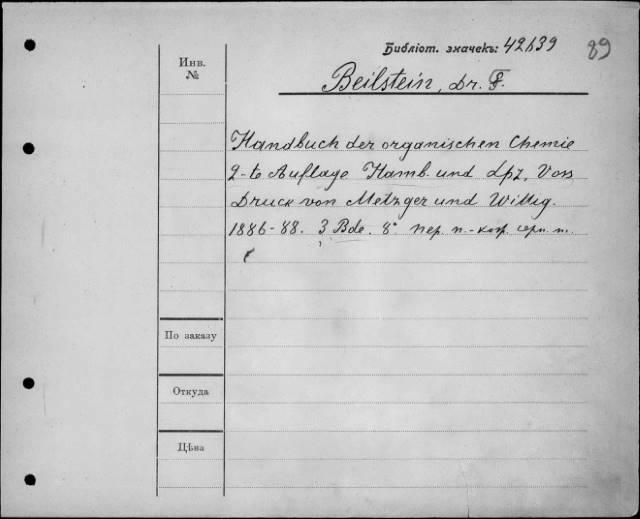 Библіот. значекъ: 42639
89
Инв. №
Beilstein, Dr. F.
Handbuch der organischen Chemie
2-te Auflage Hamb. und Lpz. Voss
Druck von Metzger und Wittig.
1886-88. 3 Bde. 8° пер. п.-кор.
По заказу
Откуда
Цѣна